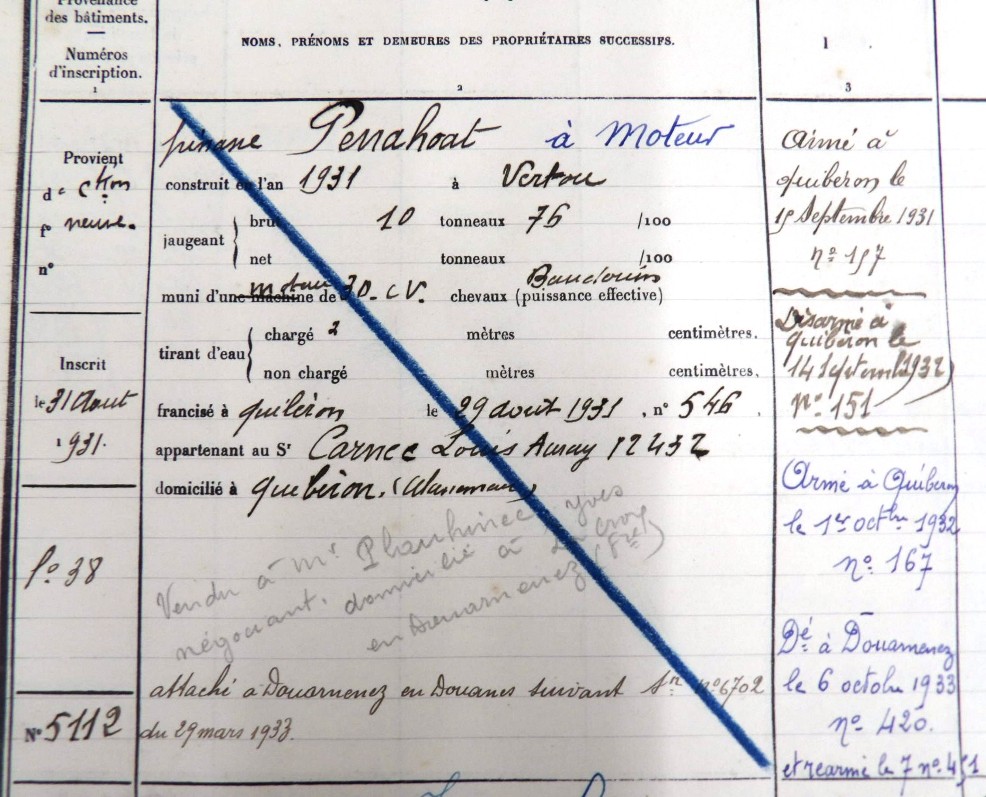 Provenance
des bâtiments.
Numéros
d'inscription.
1
NOMS, PRÉNOMS ET DEMEURES DES PROPRIÉTAIRES SUCCESSIFS.
2
1
3
Provient
de Cton
fe neuve.
n°
Inscrit
le 31 Aout
1931.
fo 38
N° 5112
pinasse Penahoat à Moteur
construit en l'an 1931 à Vertou
jaugeant
brut 10 tonneaux 76 /100
net tonneaux /100
muni d'une machine de moteur 30. CV. chevaux (puissance effective) Baudouin
tirant d'eau
chargé 2 mètres centimètres.
non chargé mètres centimètres.
francisé à quibéron le 29 aout 1931, n° 546.
appartenant au Sr Carnec Louis Auray 12432
domicilié à queberon.
Vendu à Mr Plouhinec Yves
négociant, domicilié à La Croix
en Douarnenez (Fre)
attaché à Douarnenez en Douanes suivant n° 6702
du 29 mars 1933.
Armé à
quiberon le
15 Septembre 1931
n° 157
Désarmé à
quiberon le
14 Septembre 1932
N° 151
Armé à Quiberon
le 1er octbre 1932
n° 167
Dé à Douarnenez
le 6 octobre 1933
n° 420.
et réarmé le 7 n° 451